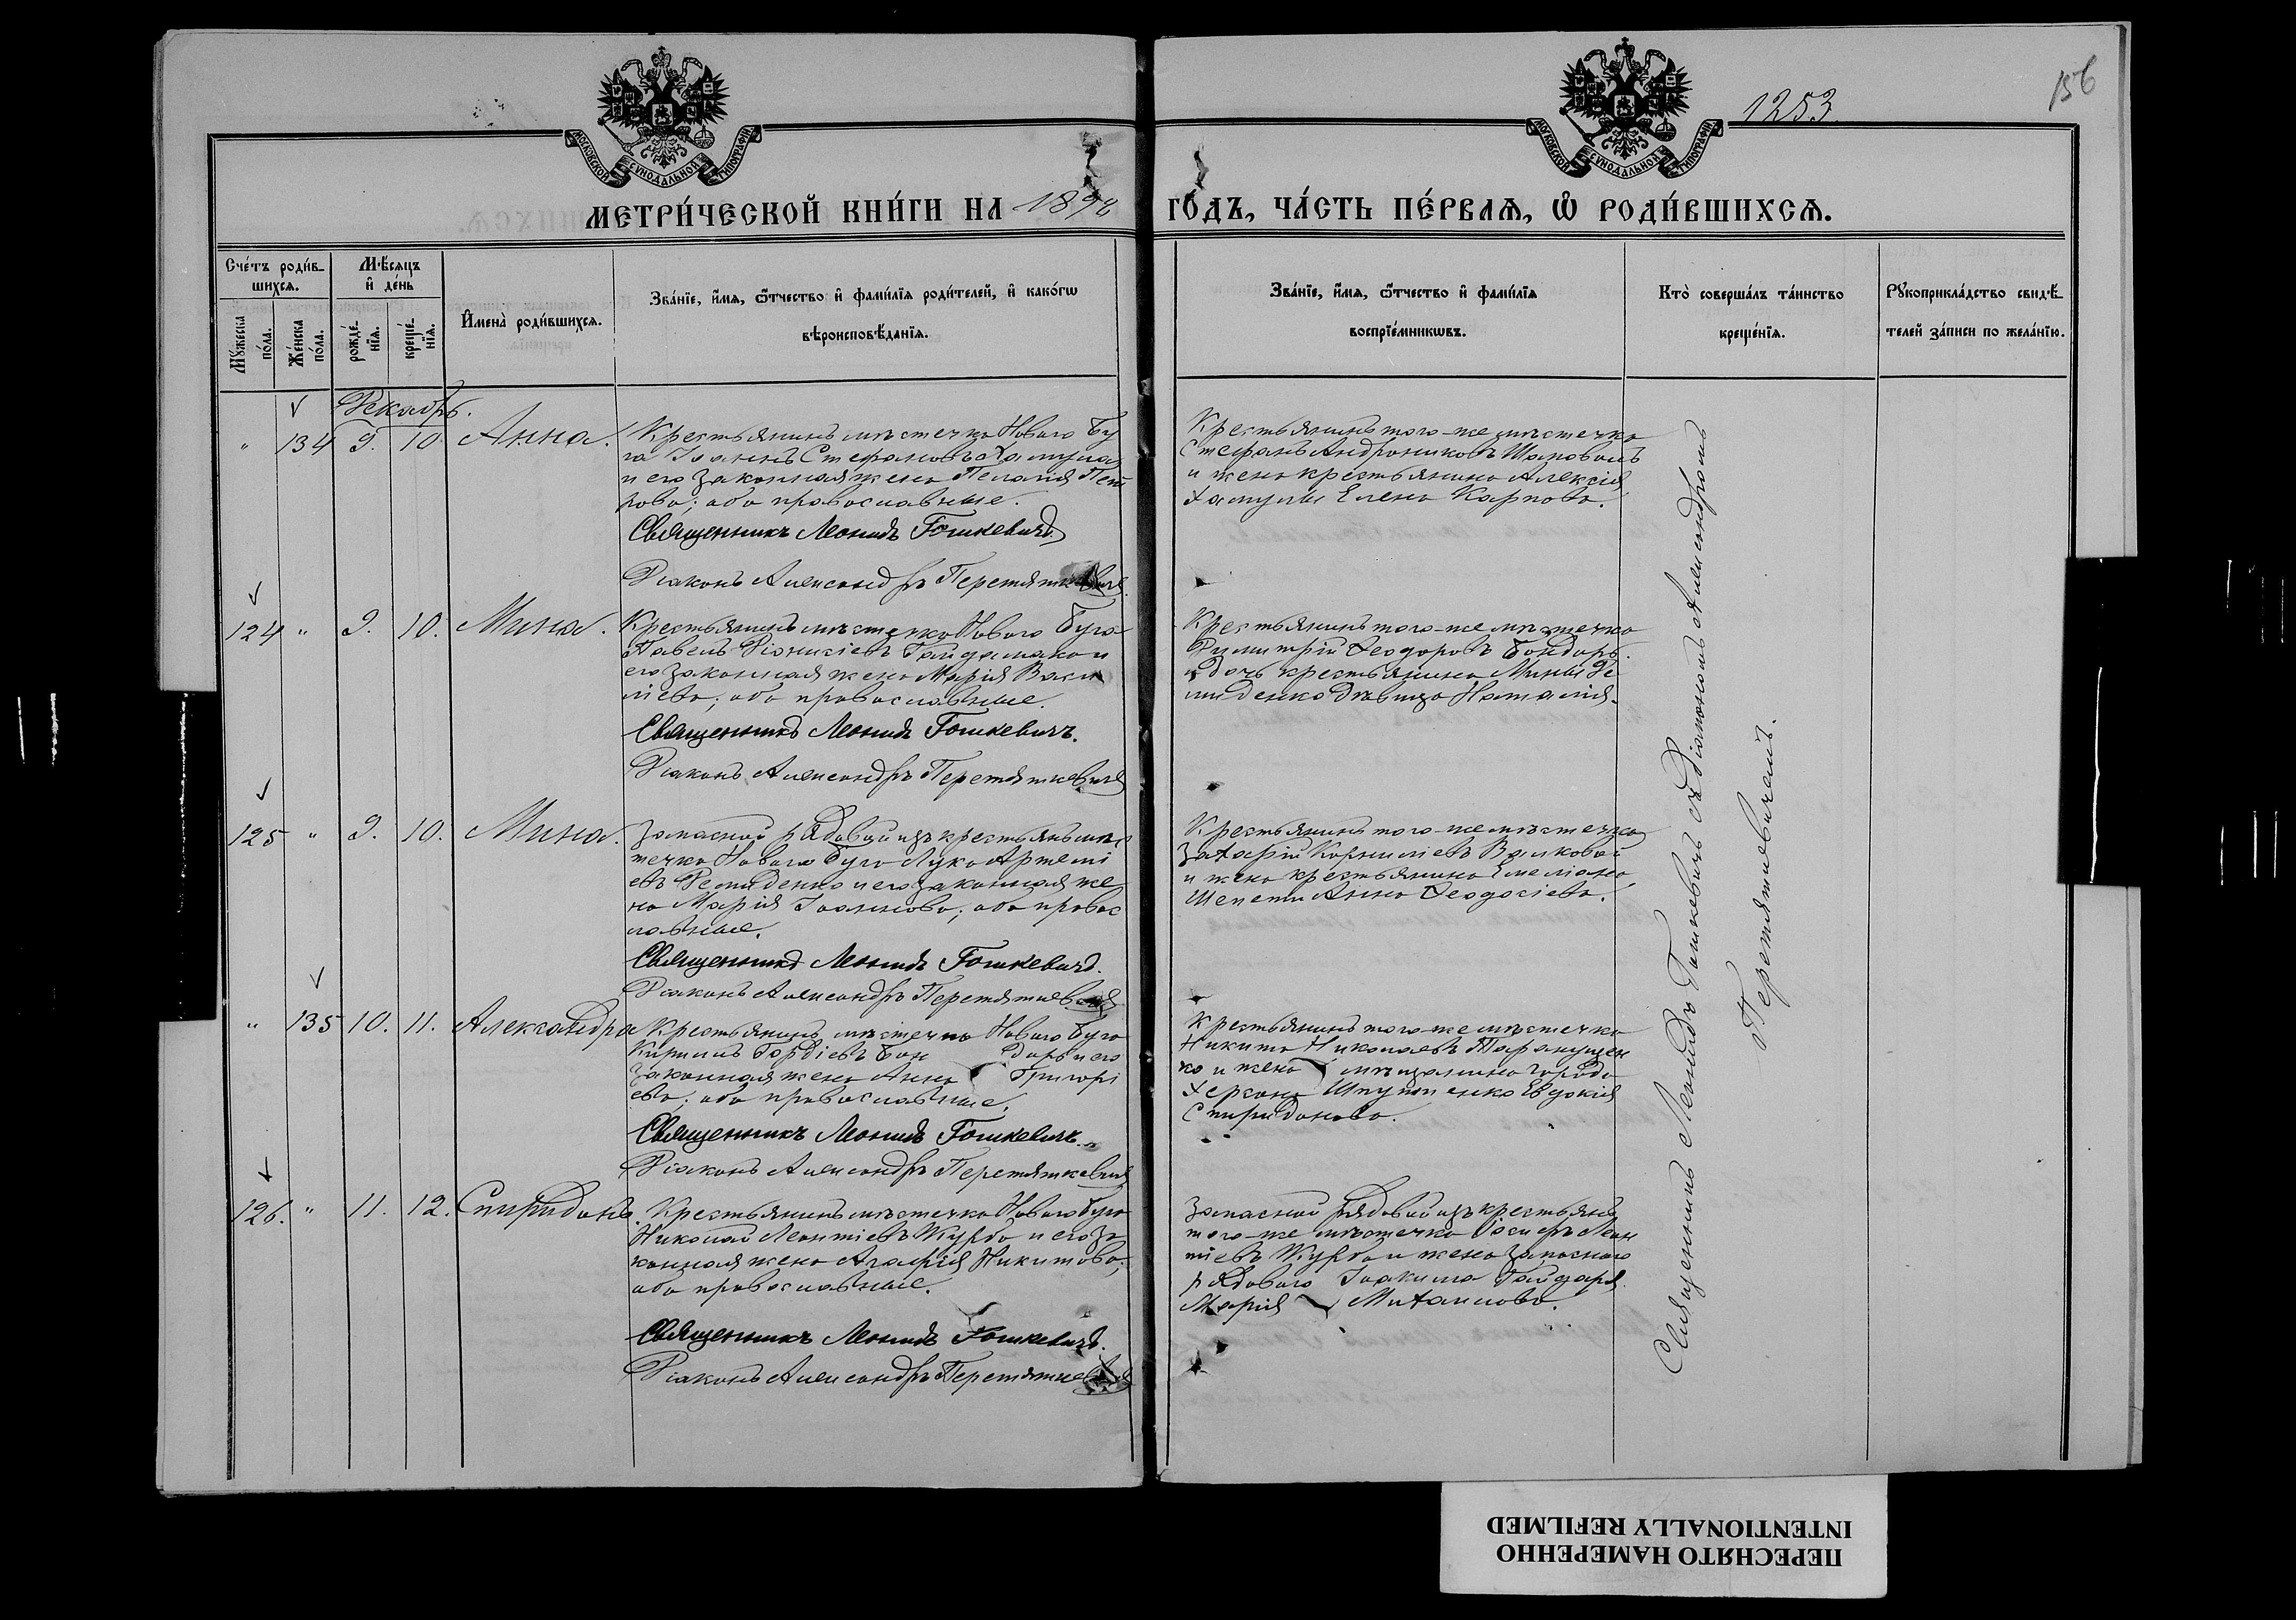 156
1253.
МОСКОВСКОЙ СѴНОДАЛЬНОЙ ТИПОГРАФІИ
МОСКОВСКОЙ СѴНОДАЛЬНОЙ ТИПОГРАФІИ
МЕТРИ́ЧЕСКОЙ КНИ́ГИ НА 1898 ГО́ДЪ, ЧА́СТЬ ПЕ́РВАѦ, Ѡ҆ РОДИ́ВШИХСѦ.
Сче́тъ роди́в-
шихсѧ.
Мꙋ́жеска
по́ла.
Же́нска
по́ла.
Мѣ́сѧцъ
и҆ де́нь
рожде́-
нїѧ.
креще́-
нїѧ.
И҆мена̀ роди́вшихсѧ.
Зва́нїе, и҆́мѧ, ѻ҆́тчество и҆ фами́лїѧ роди́телей, и҆ како́гѡ
вѣроисповѣ́данїѧ.
Зва́нїе, и҆́мѧ, ѻ҆́тчество и҆ фами́лїѧ
воспрїе́мникѡвъ.
Кто̀ соверша́лъ та́инство
креще́нїѧ.
Рꙋкоприкла́дство свидѣ́-
телей за́писи по жела́нїю.
Декабрь.
" 134 9. 10 Анна.
Крестьянинъ мѣстечка Новаго Бу
га Іоаннъ Стефановъ Хамула
и его законная жена Пелагія Пет
рова; оба православные.
Священникъ Леонидъ Гошкевичъ.
Діаконъ Александръ Перетяткевичъ.
Крестьянинъ того-же мѣстечка
Стефанъ Андрониковъ Шаповалъ
и жена крестьянина Алексія
Хамулы Елена Карпова.
124 " 9. 10. Мина.
Крестьянинъ мѣстечка Новаго Буга
Павелъ Діонисіевъ Гайдамака и
его законная жена Марія Васи
ліева; оба православные.
Священникъ Леонидъ Гошкевичъ.
Діаконъ Александръ Перетяткевичъ
Крестьянинъ того-же мѣстечка
Димитрій Ѳеодоровъ Бондарь.
и дочь крестьянина Мины Де
миденко дѣвица Наталія.
125 " 9. 10. Мина.
Запасной рядовой изъ крестьянъ мѣс
течка Новаго Буга Лука Артемі
евъ Демиденко и его законная же
на Марія Іоаннова; оба правос
лавные.
Священникъ Леонидъ Гошкевичъ.
Діаконъ Александръ Перетяткевичъ
Крестьянинъ того-же мѣстечка
Захарій Корниліевъ Волковой
и жена крестьянина Емеліана
Шепеты Анна Ѳеодосіева.
" 135 10. 11. Александра
Крестьянинъ мѣстечка Новаго Буга
Кириллъ Гордіевъ Бон дарь и его
законная жена Анна Григорі
ева; оба православные.
Священникъ Леонидъ Гошкевичъ.
Діаконъ Александръ Перетяткевичъ
Крестьянинъ того-же мѣстечка
Никита Николаевъ Таранущен
ко и жена мѣщанина города
Херсона Евдокія
Спиридонова.
126. " 11. 12. Спиридонъ.
Крестьянинъ мѣстечка Новаго Буга
Николай Леонтіевъ Журба и его за
конная жена Агафія Никитова;
оба православные.
Священникъ Леонидъ Гошкевичъ.
Діаконъ Александръ Перетяткевичъ
Запасной рядовой изъ крестьянъ
того-же мѣстечка Іосифъ Леон
тіевъ Журба и жена запаснаго
рядоваго Іоакима Гайдаря
Марія Михаилова.
Священникъ Леонидъ Гошкевичъ съ діакономъ Александромъ
Перетяткевичемъ.
ПЕРЕСНЯТО НАМЕРЕННО
INTENTIONALLY REFILMED